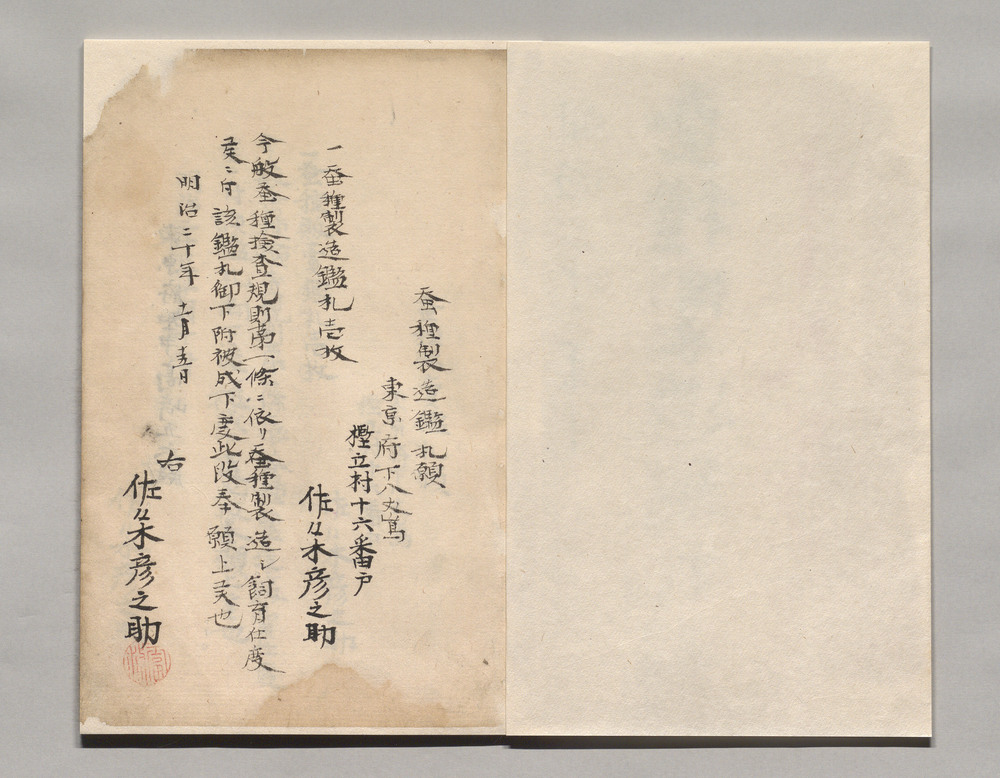 蚕種製造鑑札願
東京府下八丈嶌
樫立村十六番戸
佐々木彦之助
一蚕種製造鑑札壱枚
今般蚕種撿査規則第一條ニ依リ蚕種製造シ飼育仕度
候ニ付該鑑札御下附被成下度此段奉願上候也
明治二十年十一月十五日
右
佐々木彦之助